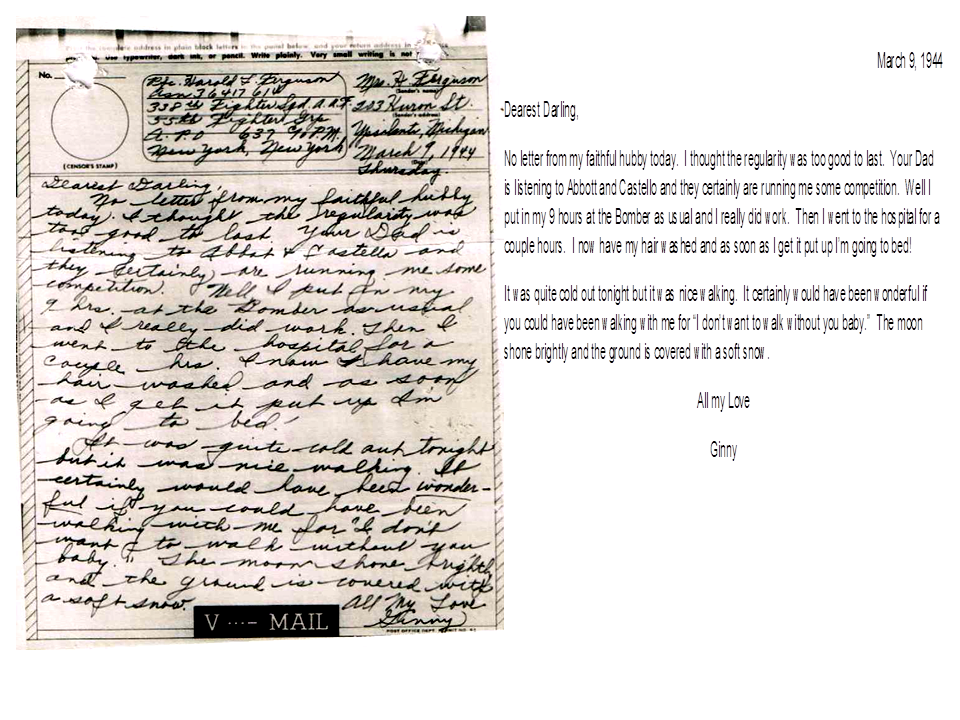 complete address in plain block letters in the panel below, and your return address in
Use typewriter, dark ink, or pencil. Write plainly. Very small writing is not
No.
(CENSOR'S STAMP)
Pfc. Harold L. Ferguson
Asn 36417614
338th Fighter Sqd. A.A.F.
55th Fighter Grp
A.P.O 637 c/o P.M.
New York, New York
Mrs. H. Ferguson
(Sender's name)
203 Huron St.
(Sender's address)
Ypsilanti, Michigan
March 9, 1944
(Date)
Thursday.
Dearest Darling,
No letter from my faithful hubby
today. I thought the regularity was
too good to last. Your Dad is
listening to Abbot & Castello and
they certainly are running me some
competition. Well I put in my
9 hrs. at the Bomber as usual
and I really did work. Then I
went to the hospital for a
couple hrs. I now I have my
hair washed and as soon
as I get it put up I'm
going to bed!
It was quite cold out tonight
but it was nice walking. It
certainly would have been wonder-
ful if you could have been
walking with me for "I don't
want to walk without you
baby." The moon shone brightly
and the ground is covered with
a soft snow.
All My Love
Ginny
V ···– MAIL
POST OFFICE DEPT. PERMIT NO.
March 9, 1944
Dearest Darling,
No letter from my faithful hubby today. I thought the regularity was too good to last. Your Dad
is listening to Abbott and Castello and they certainly are running me some competition. Well I
put in my 9 hours at the Bomber as usual and I really did work. Then I went to the hospital for a
couple hours. I now have my hair washed and as soon as I get it put up I'm going to bed!
It was quite cold out tonight but it was nice walking. It certainly would have been wonderful if
you could have been walking with me for "I don't want to walk without you baby." The moon
shone brightly and the ground is covered with a soft snow.
All my Love
Ginny